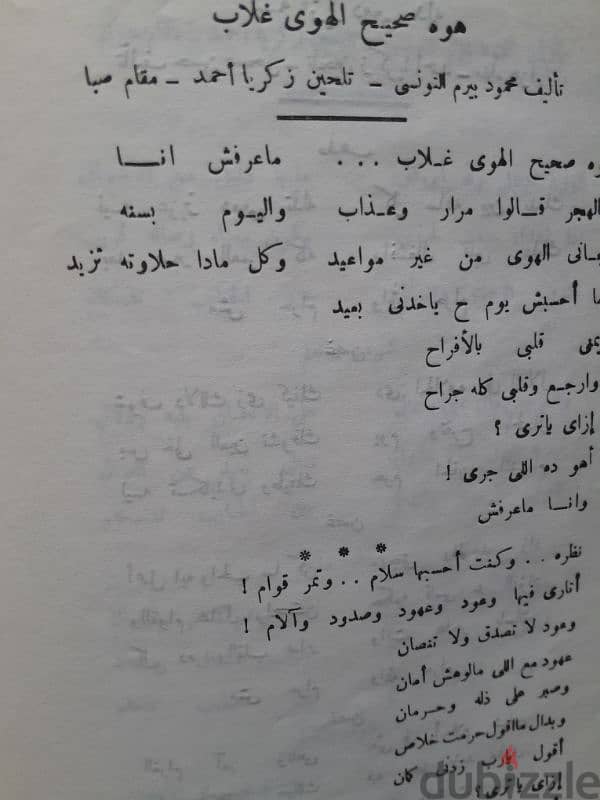 هوه صحيح الهوى غلاب
تأليف محمود بيرم التونسى - تلحين زكريا أحمد - مقام صبا
ـوه صحيح الهوى غـلاب ... ماعرفش انـــا
الهجر قــالوا مرار وعـذاب واليـوم بسنه
ـانى الهوى من غير مواعيد وكل مادا حلاوته تزيد
ـا أحسبش يوم ح ياخدنى بعيد
يمنى قلبى بالأفراح
وارجـع وقلبى كله جراح
إزاى ياترى ؟
أهو ده اللى جرى !
وانـا ماعرفش
* * *
نظره .. وكنت أحسبها سلام .. وتمر قوام !
أتارى فيها وعود وعهود وصدود وآلام !
وعود لا تصدق ولا تنصان
عهود مع اللى مالوهش أمان
وصبر على ذله وحـرمان
وبدال مااقول حرمت خلاص
أقول يارب زدنى كان
إزاى ياترى ؟
dubizzle